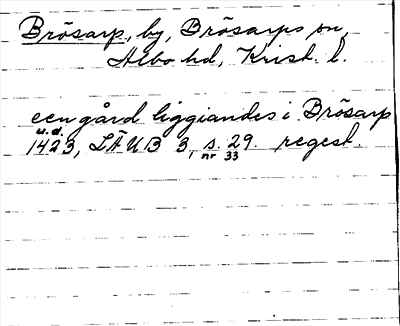 Brösarp, by, Brösarps sn,
Albo hd, Krist. l.
een gård liggiandes i Brösarp
u.d.
1423, LÄUB 3, s. 29. regest.
nr 33